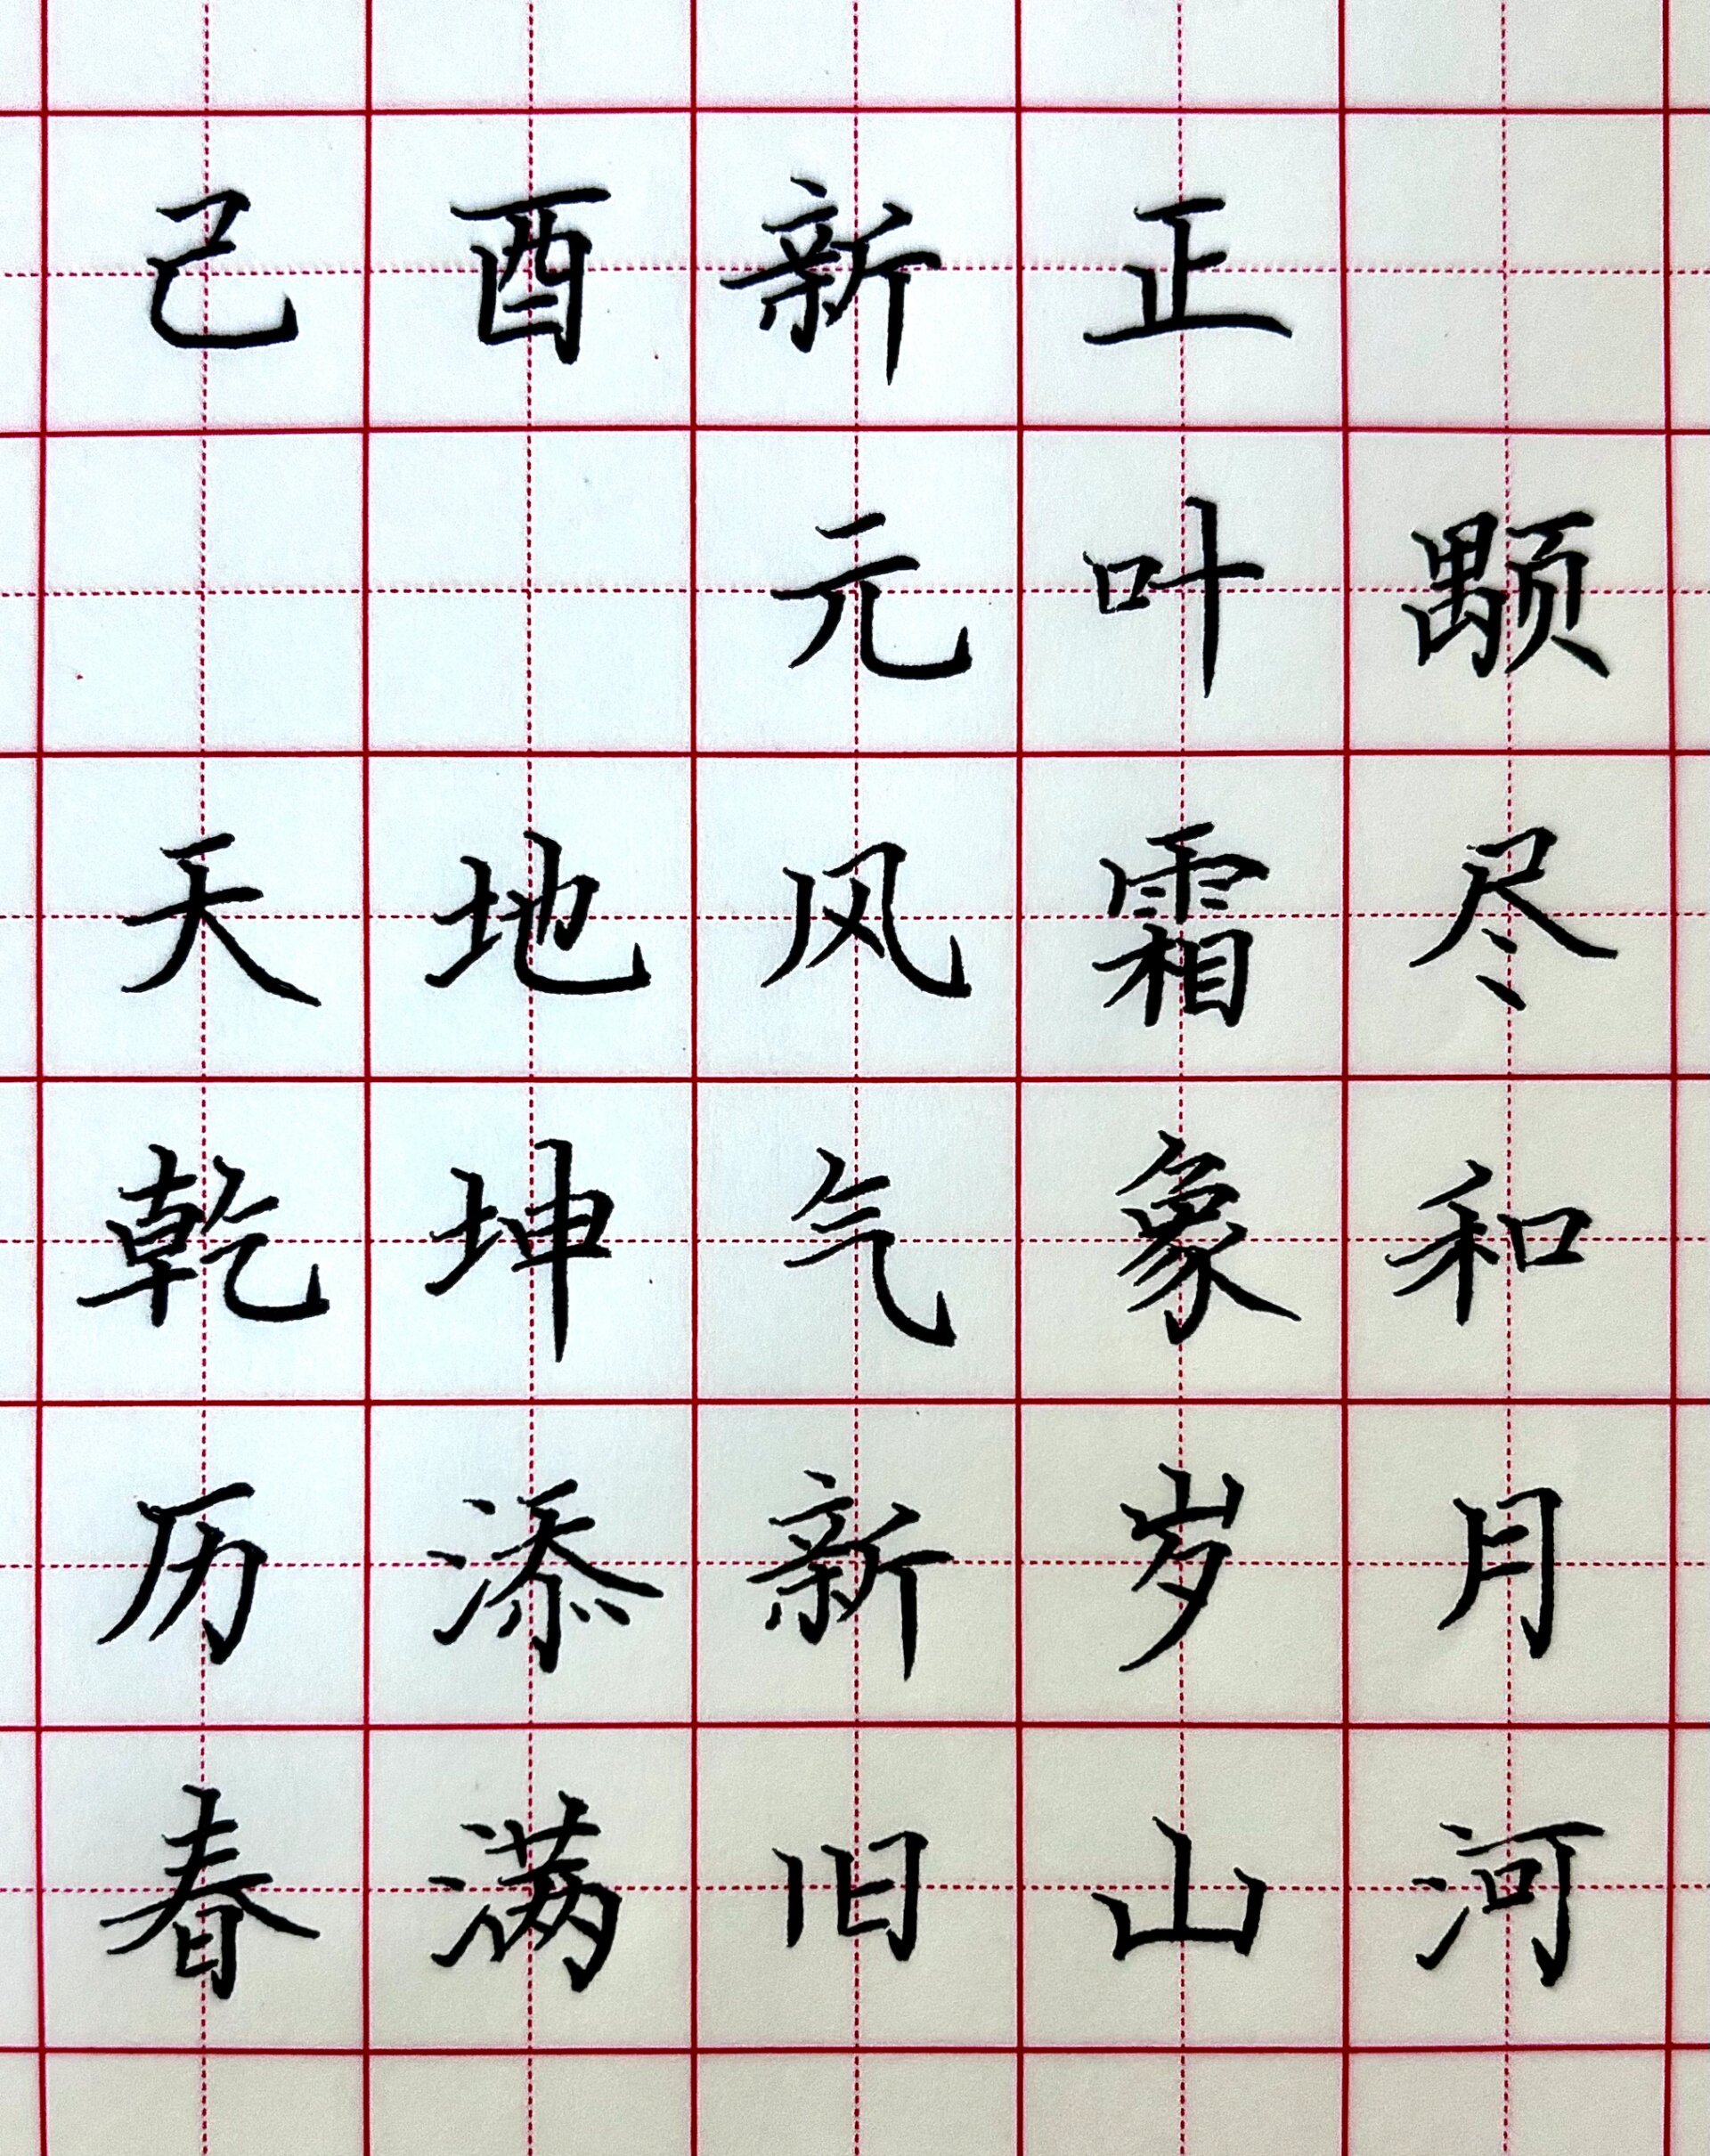 己酉新正
元叶颙
天地风霜尽
乾坤气象和
历添新岁月
春满旧山河